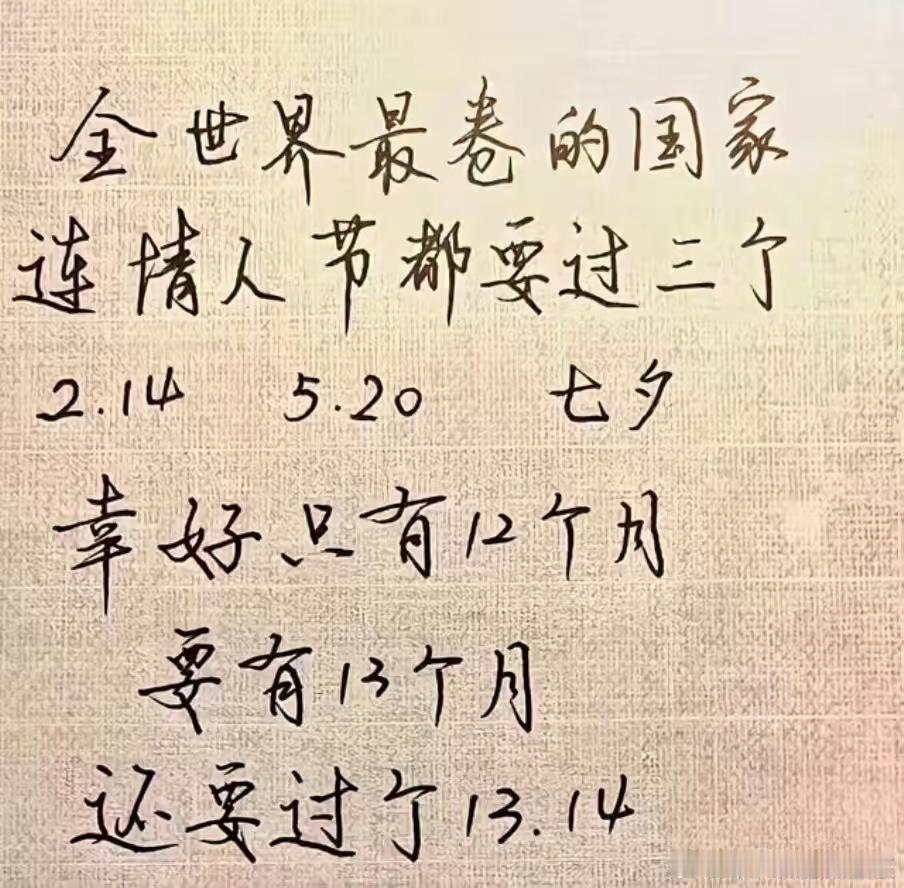 全世界最卷的国家
连情人节都要过三个
2.14 5.20 七夕
幸好只有12个月
要有13个月
还要过个13.14